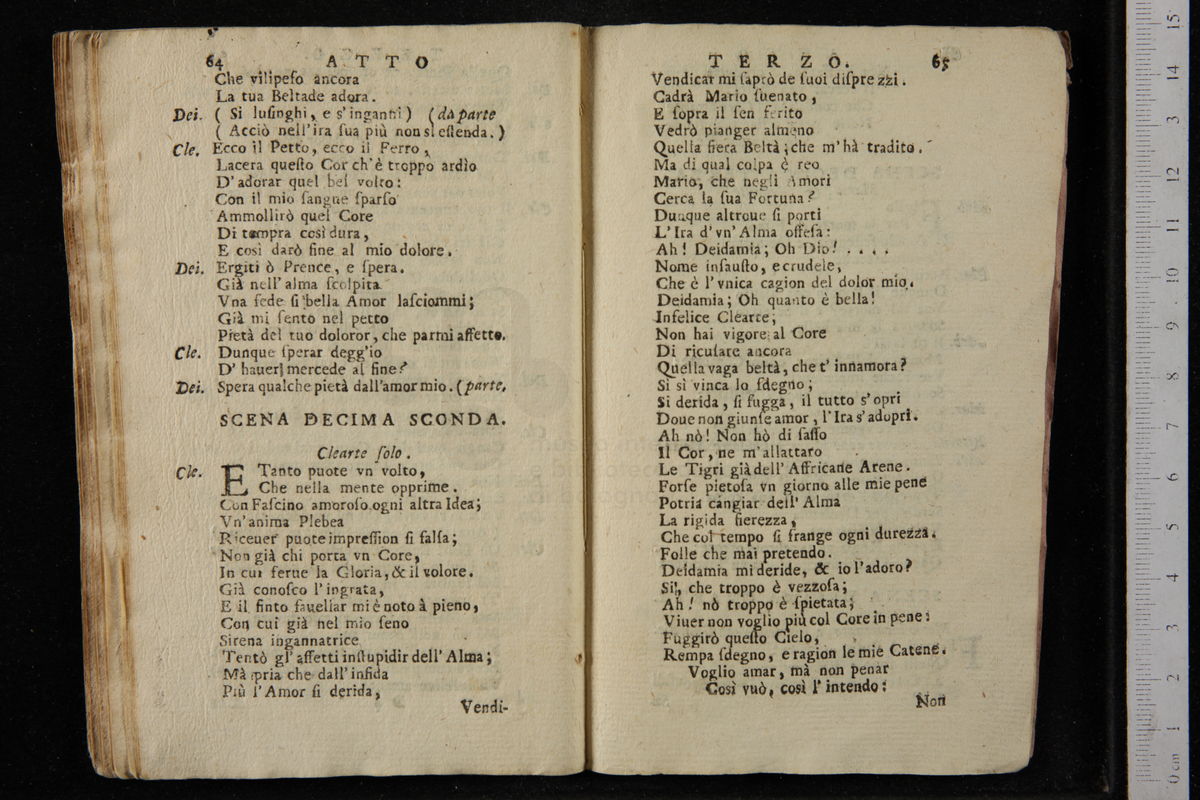 64 ATTO
Che vilipeſo ancora
La tua Beltade adora.
Dei. ( Si luſinghi, e s'inganni ) (dà parte
( Acciò nell'ira ſua più non si eſtenda. )
Cle. Ecco il Petto, ecco il Ferro,
Lacera queſto Cor ch'è troppo ardìo
D'adorar quel bel volto:
Con il mio ſangue ſparſo
Ammollirò quel Core
Di tempra così dura,
E così darò fine al mio dolore.
Dei. Ergiti ò Prence, e ſpera.
Già nell'alma ſcolpita
Vna fede ſi bella Amor laſciommi;
Già mi ſento nel petto
Pietà del tuo doloror, che parmi affetto.
Cle. Dunque ſperar degg'io
D'hauer mercede al fine?
Dei. Spera qualche pietà dall'amor mio. (parte.
SCENA DECIMA SCONDA.
Clearte ſolo.
Cle. E Tanto puote vn volto,
Che nella mente opprime.
Con Faſcino amoroſo ogni altra Idea;
Vn'anima Plebea
Riceuer puote impreſſion ſi falſa;
Non già chi porta vn Core,
In cui ferue la Gloria, & il volore.
Già conoſco l'ingrata,
E il finto fauellar mi è noto à pieno,
Con cui già nel mio ſeno
Sirena ingannatrice
Tentò gl'affetti inſtupidir dell'Alma;
Mà pria che dall'infida
Più l'Amor ſi derida,
Vendi-
TERZO. 65
Vendicar mi ſaprò de ſuoi diſprezzi.
Cadrà Mario ſuenato,
E ſopra il ſen ferito
Vedrò pianger almeno
Quella fiera Beltà; che m'hà tradito.
Ma di qual colpa è reo
Mario, che negli Amori
Cerca la ſua Fortuna?
Dunque altroue ſi porti
L'Ira d'vn'Alma offeſa:
Ah! Deidamia; Oh Dio! . . . .
Nome infauſto, e crudele,
Che è l'vnica cagion del dolor mio.
Deidamia; Oh quanto è bella!
Infelice Clearte;
Non hai vigore al Core
Di ricuſare ancora
Quella vaga beltà, che t'innamora?
Si sì vinca lo ſdegno;
Si derida, ſi fugga, il tutto s'opri
Doue non giunſe amor, l'Ira s'adopri.
Ah nò! Non hò di ſaſſo
Il Cor, ne m'allattaro
Le Tigri già dell'Affricane Arene.
Forſe pietoſa vn giorno alle mie pene
Potria cangiar dell'Alma
La rigida fierezza,
Che col tempo ſi frange ogni durezza.
Folle che mai pretendo.
Deidamia mi deride, & io l'adoro?
Si, che troppo è vezzoſa;
Ah! nò troppo è ſpietata;
Viuer non voglio più col Core in pene:
Fuggirò queſto Cielo,
Rempa ſdegno, e ragion le mie Catene.
Voglio amar, mà non penar
Così vuò, così l'intendo:
Non
0 cm 1 2 3 4 5 6 7 8 9 10 11 12 3 14 15